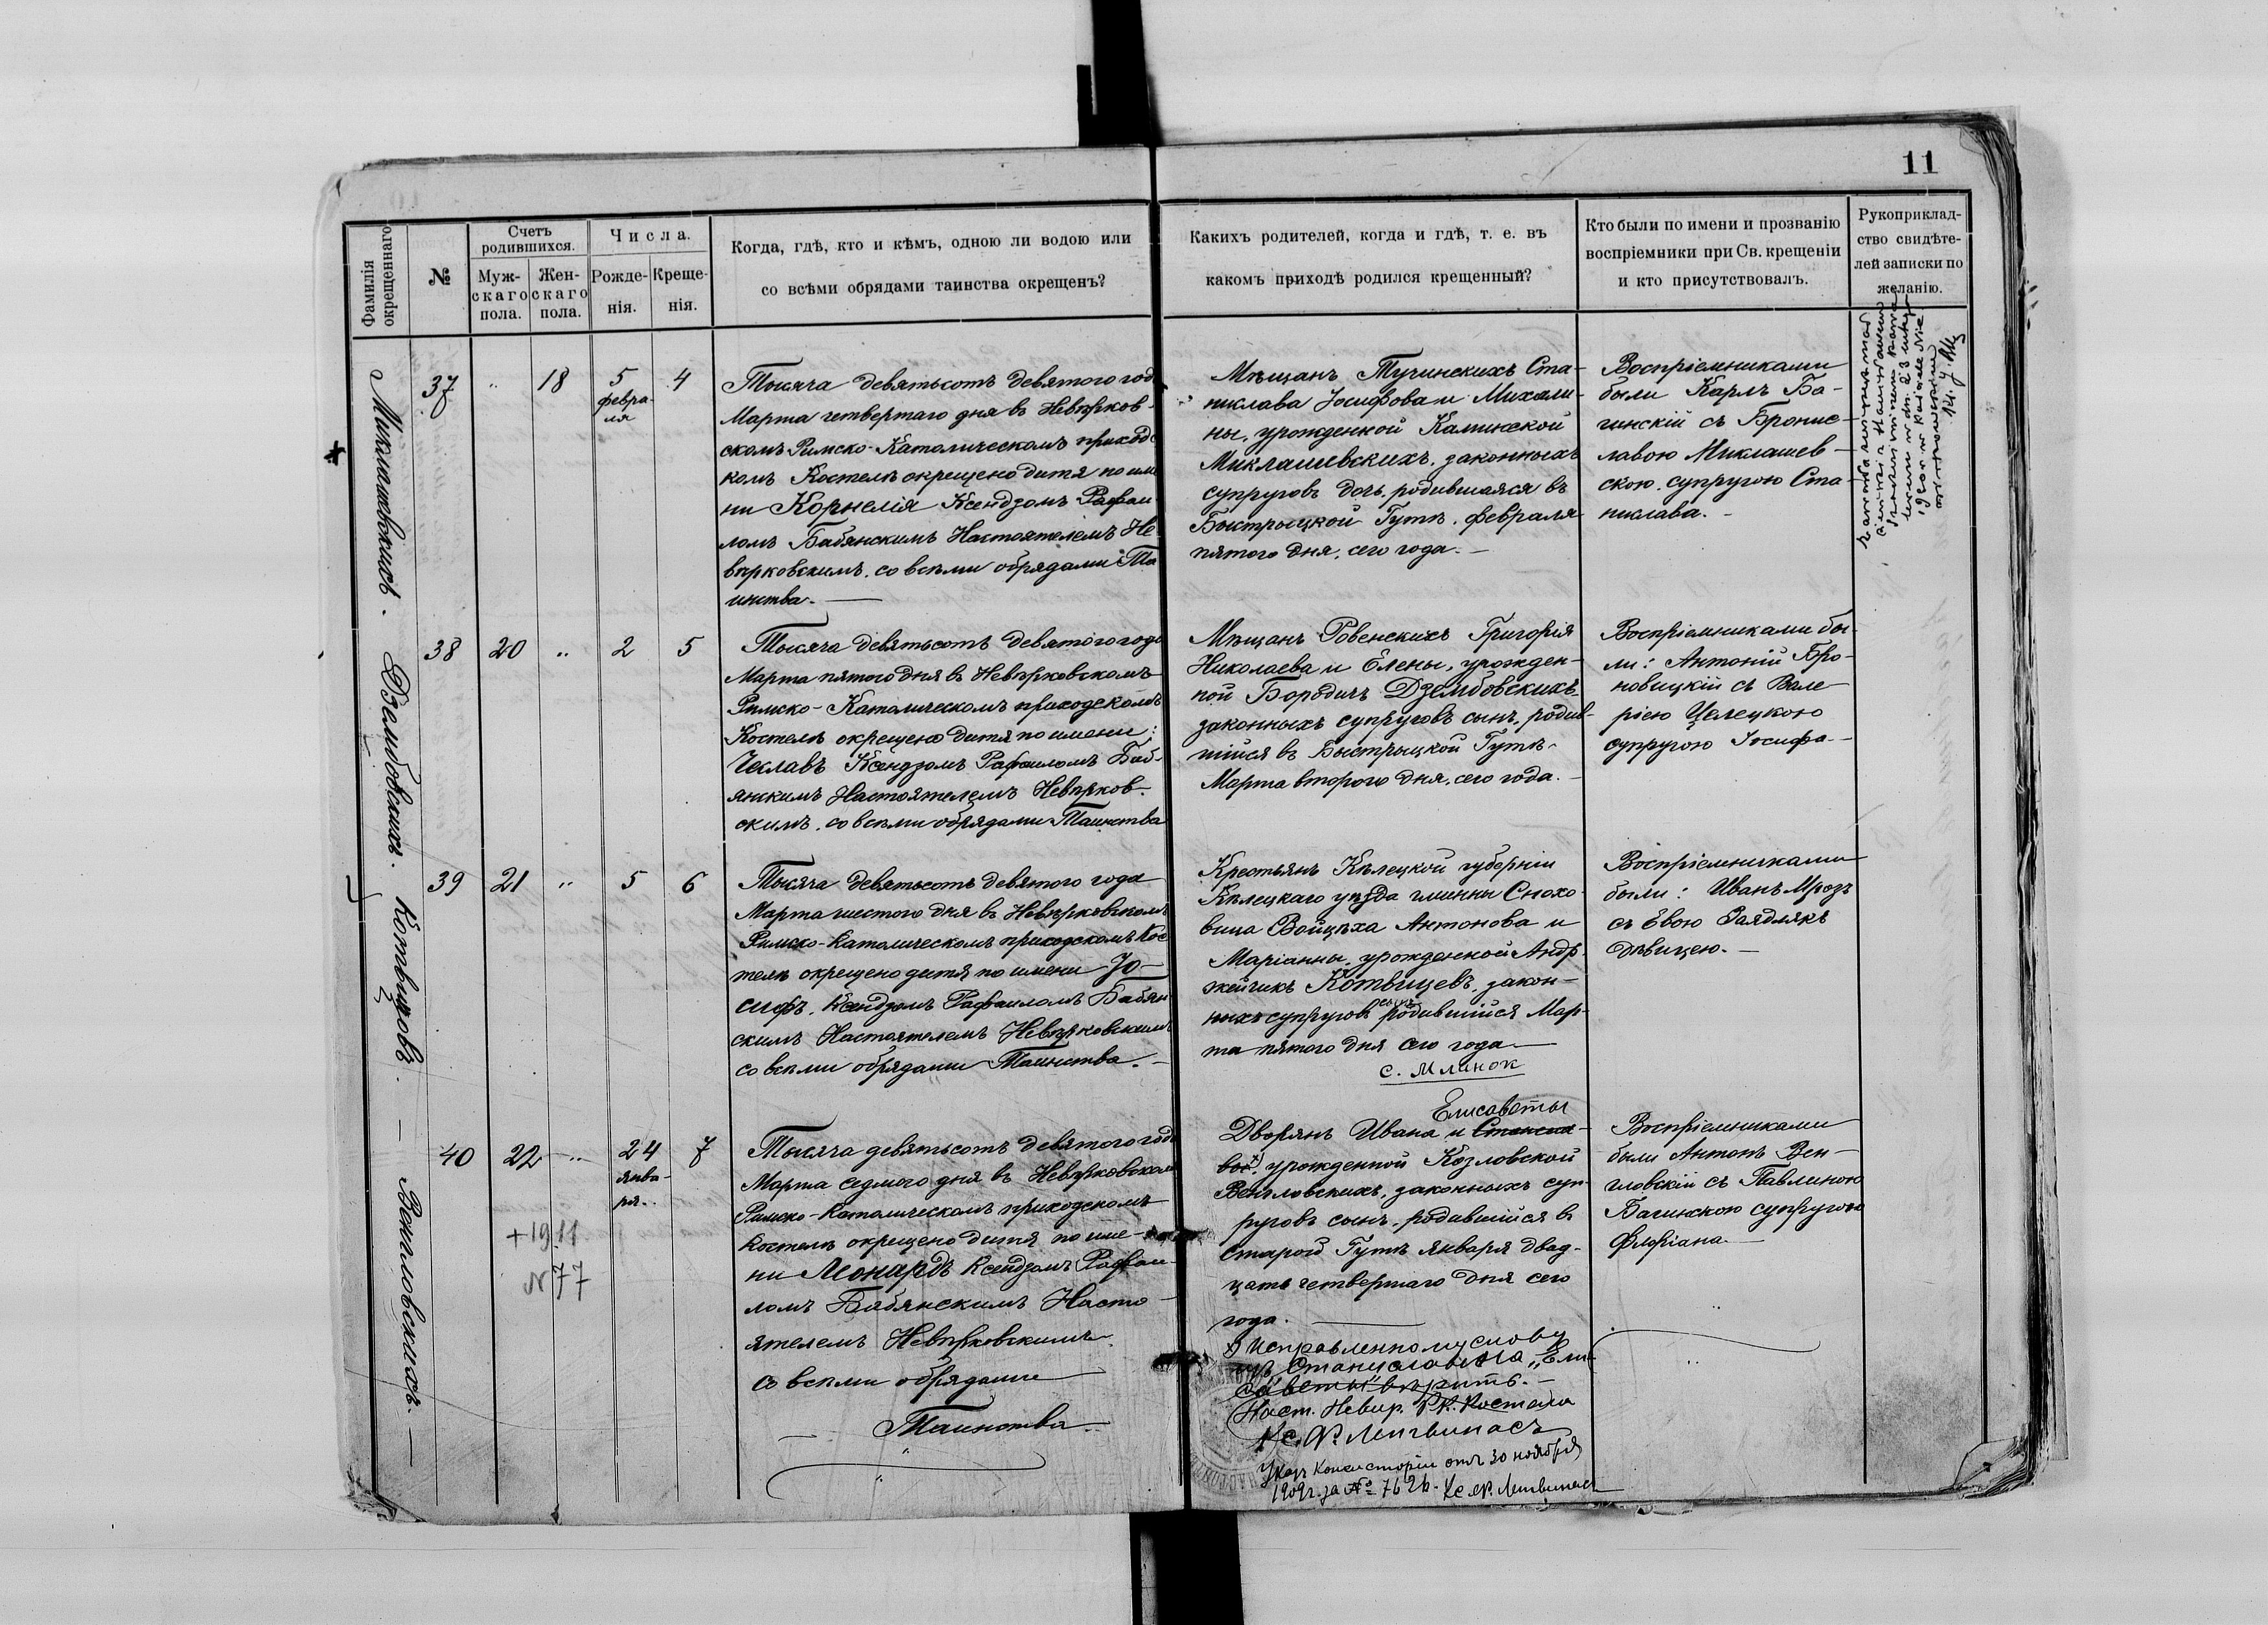 11
Фамилія
окрещеннаго
№
Счетъ
родившихся.
Муж-
скаго
пола.
Жен-
скаго
пола.
Числа.
Рожде-
нія.
Креще-
нія.
Когда, гдѣ, кто и кѣмъ, одною ли водою или
со всѣми обрядами таинства окрещенъ?
Какихъ родителей, когда и гдѣ, т. е. въ
какомъ приходѣ родился крещенный?
Кто были по имени и прозванію
воспріемники при Св. крещеніи
и кто присутствовалъ.
Рукоприклад-
ство свидѣте-
лей записки по
желанію.
Миклашевскихъ.
37
"
18
5
февра-
ля
4
Тысяча девятьсотъ девятого год
Марта четвертаго дня въ Невѣрков-
скомъ Римско-Католическомъ приходс
комъ Костелѣ окрещено дитя по име
ни Корнелія Ксендзомъ Рафаи
ломъ Бабянскимъ Настоятелемъ Не
вѣрковскимъ, со всѣми обрядами Та
инства.—
Мѣщанъ Тучинскихъ Ста-
нислава Іосифова и Михали-
ны, урожденной Калинской
Миклашевскихъ, законныхъ
супруговъ дочь, родившаяся въ
Быстрыцкой Гутѣ, февраля
пятого дня, сего года.—
Воспріемниками
были Карлъ Ба-
гинскій съ Бронис-
лавою Миклашев-
скою, супругою Ста-
нислава.-
Дзембовскихъ.
38
20
"
2
5
Тысяча девятьсотъ девятого года
Марта пятого дня въ Невѣрковскомъ
Римско-Католическомъ приходскомъ
Костелѣ окрещено дитя по имени:
Чеславъ Ксендзомъ Рафаиломъ Баб-
янскимъ Настоятелемъ Невѣрков-
скимъ, со всѣми обрядами Таинства
Мѣщанъ Ровенскихъ Григорія
Николаева и Елены, урожден-
ной Бородичъ Дзембовскихъ
законныхъ супруговъ сынъ, родив-
шійся въ Быстрыцкой Гутѣ
Марта второго дня, сего года.-
Воспріемниками бы-
ли: Антоній Бро-
новицкій съ Вале-
ріею Целецкою
супругою Іосифа.-
Котвицовъ.
39
21
"
5
6
Тысяча девятьсотъ девятого года
Марта шестого дня въ Невѣрковскомъ
Римско-Католическомъ приходскомъ Кос
телѣ окрещено дитя по имени Іо-
сифъ, Ксендзомъ Рафаиломъ Бабян
скимъ Настоятелемъ Невѣрковскимъ
со всѣми обрядами Таинства.-
Крестьянъ Кѣлецкой губерніи
Кѣлецкаго уѣзда гминны Снохо-
вица Войцѣха Антонова и
Маріанны, урожденной Андр-
жейчикъ Котвицевъ, закон-
ныхъ супруговъ сынъ родившійся Мар-
та пятого дня сего года.—
с. Млинок
Воспріемниками
были: Иванъ Мрозъ
съ Евою
дѣвицею.-
Венгловскихъ.—
40
22
"
24
янва-
ря.
7
+1911
N 77
Тысяча девятьсотъ девятого года
Марта седмого дня въ Невѣрковскомъ
Римско-Католическомъ приходскомъ
Костелѣ окрещено дитя по име-
ни Леонардъ Ксендзомъ Рафаи-
ломъ Бабянскимъ Насто-
ятелемъ Невѣрковскимъ
со всѣми обрядами
Таинства.-
Елисаветы
Дворянъ Ивана и Станисла-
вы, урожденной Козловской
Венгловскихъ, законныхъ суп-
руговъ сынъ, родившійся въ
старой Гутѣ января двад-
цать четвертаго дня сего
года.—
Исправленному слову
изъ Станиславы на „Ели-
саветы" вѣрить.-
Наст. Невир. Р.К. Костела
Кс.
Указъ Консисторіи отъ 30 ноября
1909 г. за № 7626.
Воспріемниками
были Антонъ Вен-
гловскій съ Павлиною
Багинскою супругою
Флоріана.-